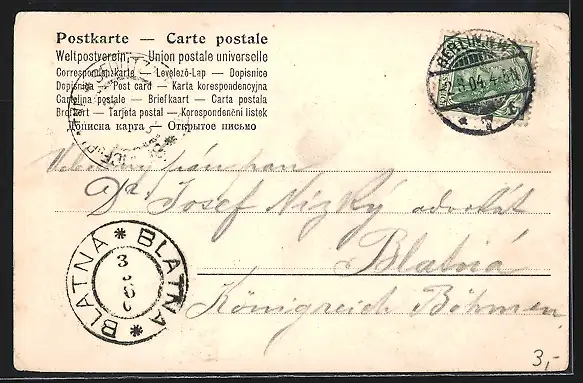 Postkarte — Carte postale
Weltpostverein — Union postale universelle
Correspondenzkarte — Levelező-Lap — Dopisnice
Dopisnica — Post card — Karta korespondencyjna
Cartolina postale — Briefkaart — Carta postala
Brefkort — Tarjeta postal — Korespondenční lístek
Дописна карта — Открытое письмо
BERLIN, N.W.
pán pan
Dr. Josef Nízký advokát
Blatná
Königreich Böhmen
BLATNA * BLATNA *
3,-